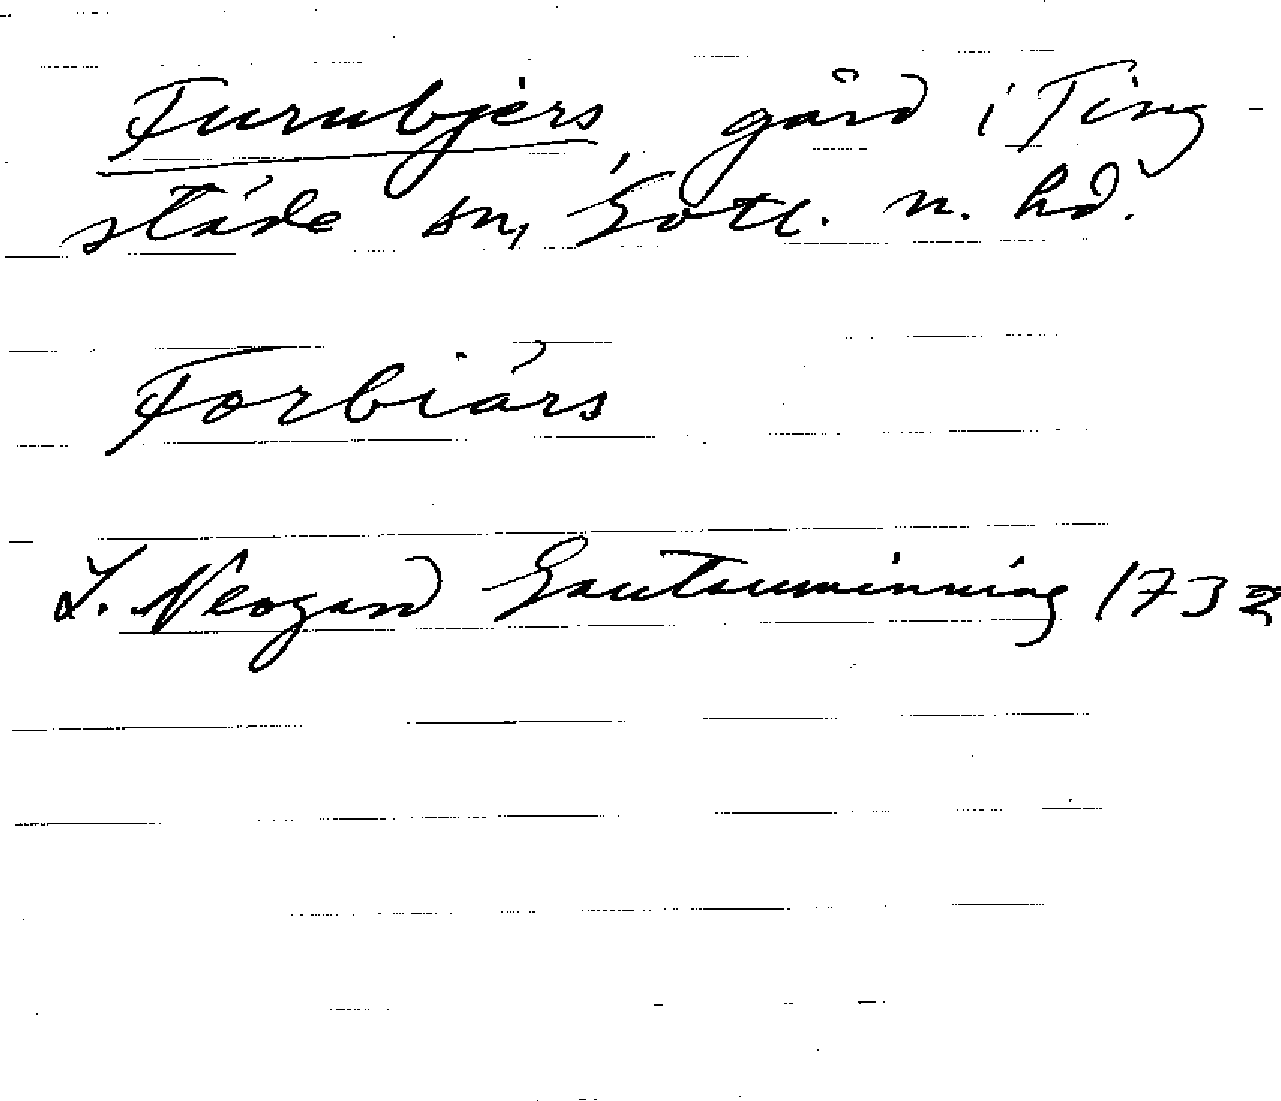 Furubjers, gård i Ting-
städe sn, Gotl. n. hd.
Forbiärs
L. Neogard Gautauminning 1732